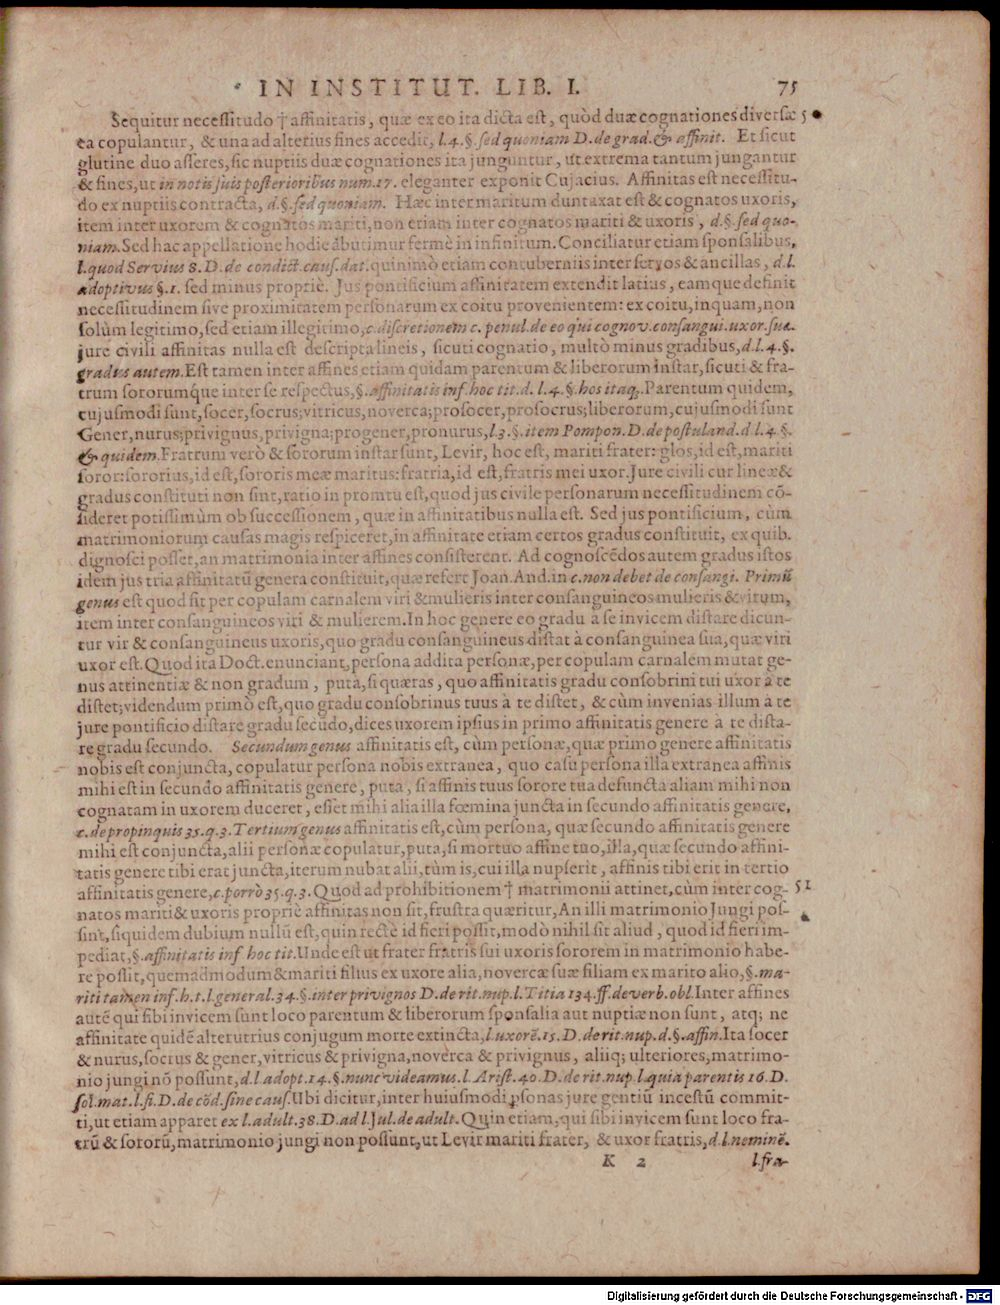 IN INSTITUT. LIB. I. 75
Sequitur necessitudo † affinitatis, quæ ex eo ita dicta est, quòd duæ cognationes diversæ 5
ea copulantur, & una ad alterius fines accedit, l. 4. §. sed quoniam D. de grad. & affinit. Et sicut
glutine duo asseres, sic nuptiis duæ cognationes ita junguntur, ut extrema tantum jungantur
& fines, ut in notis suis posterioribus num. 17. eleganter exponit Cujacius. Affinitas est necessitu-
do ex nuptiis contracta, d. §. sed quoniam. Hæc inter maritum duntaxat est & cognatos uxoris,
item inter uxorem & cognatos mariti, non etiam inter cognatos mariti & uxoris, d. §. sed quo-
niam. Sed hac appellatione hodie abutimur fermè in infinitum. Conciliatur etiam sponsalibus,
l. quod Servius 8. D. de condict. caus. dat. quinimò etiam contuberniis inter servos & ancillas, d. l.
adoptivus §. 1. sed minus propriè. Jus pontificium affinitatem extendit latius, eamque definit
necessitudinem sive proximitatem personarum ex coitu provenientem: ex coitu, inquam, non
solùm legitimo, sed etiam illegitimo, c. discretionem c. penul. de eo qui cognov. consangui. uxor. suæ.
jure civili affinitas nulla est descripta lineis, sicuti cognatio, multò minus gradibus, d. l. 4. §.
gradus autem. Est tamen inter affines etiam quidam parentum & liberorum instar, sicuti & fra-
trum sororumque inter se respectus, §. affinitatis inf. hoc tit. d. l. 4. §. hos itaq;. Parentum quidem,
cujusmodi sunt, socer, socrus; vitricus, noverca; prosocer, prosocrus; liberorum, cujusmodi sunt
Gener, nurus; privignus, privigna; progener, pronurus, l. 3. §. item Pompon. D. de postuland. d. l. 4. §.
& quidem. Fratrum verò & sororum instar sunt, Levir, hoc est, mariti frater: glos, id est, mariti
soror: sororius, id est, sororis meæ maritus: fratria, id est, fratris mei uxor. Jure civili cur lineæ &
gradus constituti non sint, ratio in promtu est, quod jus civile personarum necessitudinem cō-
sideret potissimùm ob successionem, quæ in affinitatibus nulla est. Sed jus pontificium, cùm
matrimoniorum causas magis respiceret, in affinitate etiam certos gradus constituit, ex quib.
dignosci posset, an matrimonia inter affines consisterent. Ad cognoscēdos autem gradus istos
idem jus tria affinitatū genera constituit, quæ refert Joan. And. in c. non debet de consangi. Primū
genus est quod fit per copulam carnalem viri & mulieris inter consanguineos mulieris & virum,
item inter consanguineos viri & mulierem. In hoc genere eo gradu à se invicem distare dicun-
tur vir & consanguineus uxoris, quo gradu consanguineus distat à consanguinea sua, quæ viri
uxor est. Quod ita Doct. enunciant, persona addita personæ, per copulam carnalem mutat ge-
nus attinentiæ & non gradum, puta, si quæras, quo affinitatis gradu consobrini tui uxor à te
distet; videndum primò est, quo gradu consobrinus tuus à te distet, & cùm invenias illum à te
jure pontificio distare gradu secūdo, dices uxorem ipsius in primo affinitatis genere à te dista-
re gradu secundo. Secundum genus affinitatis est, cùm personæ, quæ primo genere affinitatis
nobis est conjuncta, copulatur persona nobis extranea, quo casu persona illa extranea affinis
mihi est in secundo affinitatis genere, puta, si affinis tuus sorore tua defuncta aliam mihi non
cognatam in uxorem duceret, esset mihi alia illa fœmina juncta in secundo affinitatis genere,
c. de propinquis 35. q. 3. Tertium genus affinitatis est, cùm persona, quæ secundo affinitatis genere
mihi est conjuncta, alii personæ copulatur, puta, si mortuo affine tuo, illa, quæ secundo affini-
tatis genere tibi erat juncta, iterum nubat alii, tùm is, cui illa nupserit, affinis tibi erit in tertio
affinitatis genere, c. porrò 35. q. 3. Quod ad prohibitionem † matrimonii attinet, cùm inter cog- 51
natos mariti & uxoris propriè affinitas non sit, frustra quæritur, An illi matrimonio Jungi pos-
sint, siquidem dubium nullū est, quin rectè id fieri possit, modò nihil sit aliud, quod id fieri im-
pediat, §. affinitatis inf. hoc tit. Unde est ut frater fratris sui uxoris sororem in matrimonio habe-
re possit, quemadmodum & mariti filius ex uxore alia, novercæ suæ filiam ex marito alio, §. ma-
riti tamen inf. h. t. l. general. 34. §. inter privignos D. de rit. nup. l. Titia 134. ff. de verb. obl. Inter affines
autē qui sibi invicem sunt loco parentum & liberorum sponsalia aut nuptiæ non sunt, atq; ne
affinitate quidē alterutrius conjugum morte extincta, l. uxorē. 15. D. de rit. nup. d. §. affin. Ita socer
& nurus, socrus & gener, vitricus & privigna, noverca & privignus, aliiq; ulteriores, matrimo-
nio jungi nō possunt, d. l. adopt. 14. §. nunc videamus. l. Arist. 40. D. de rit. nup. l. quia parentis 16. D.
sol. mat. l. fi. D. de cōd. sine caus. Ubi dicitur, inter huiusmodi ꝑsonas jure gentiū incestū committ-
ti, ut etiam apparet ex l. adult. 38. D. ad l. Jul. de adult. Quin etiam, qui sibi invicem sunt loco fra-
trū & sororū, matrimonio jungi non possunt, ut Levir mariti frater, & uxor fratris, d. l. neminē.
K 2 l. fra-
Digitalisierung gefördert durch die Deutsche Forschungsgemeinschaft - DFG